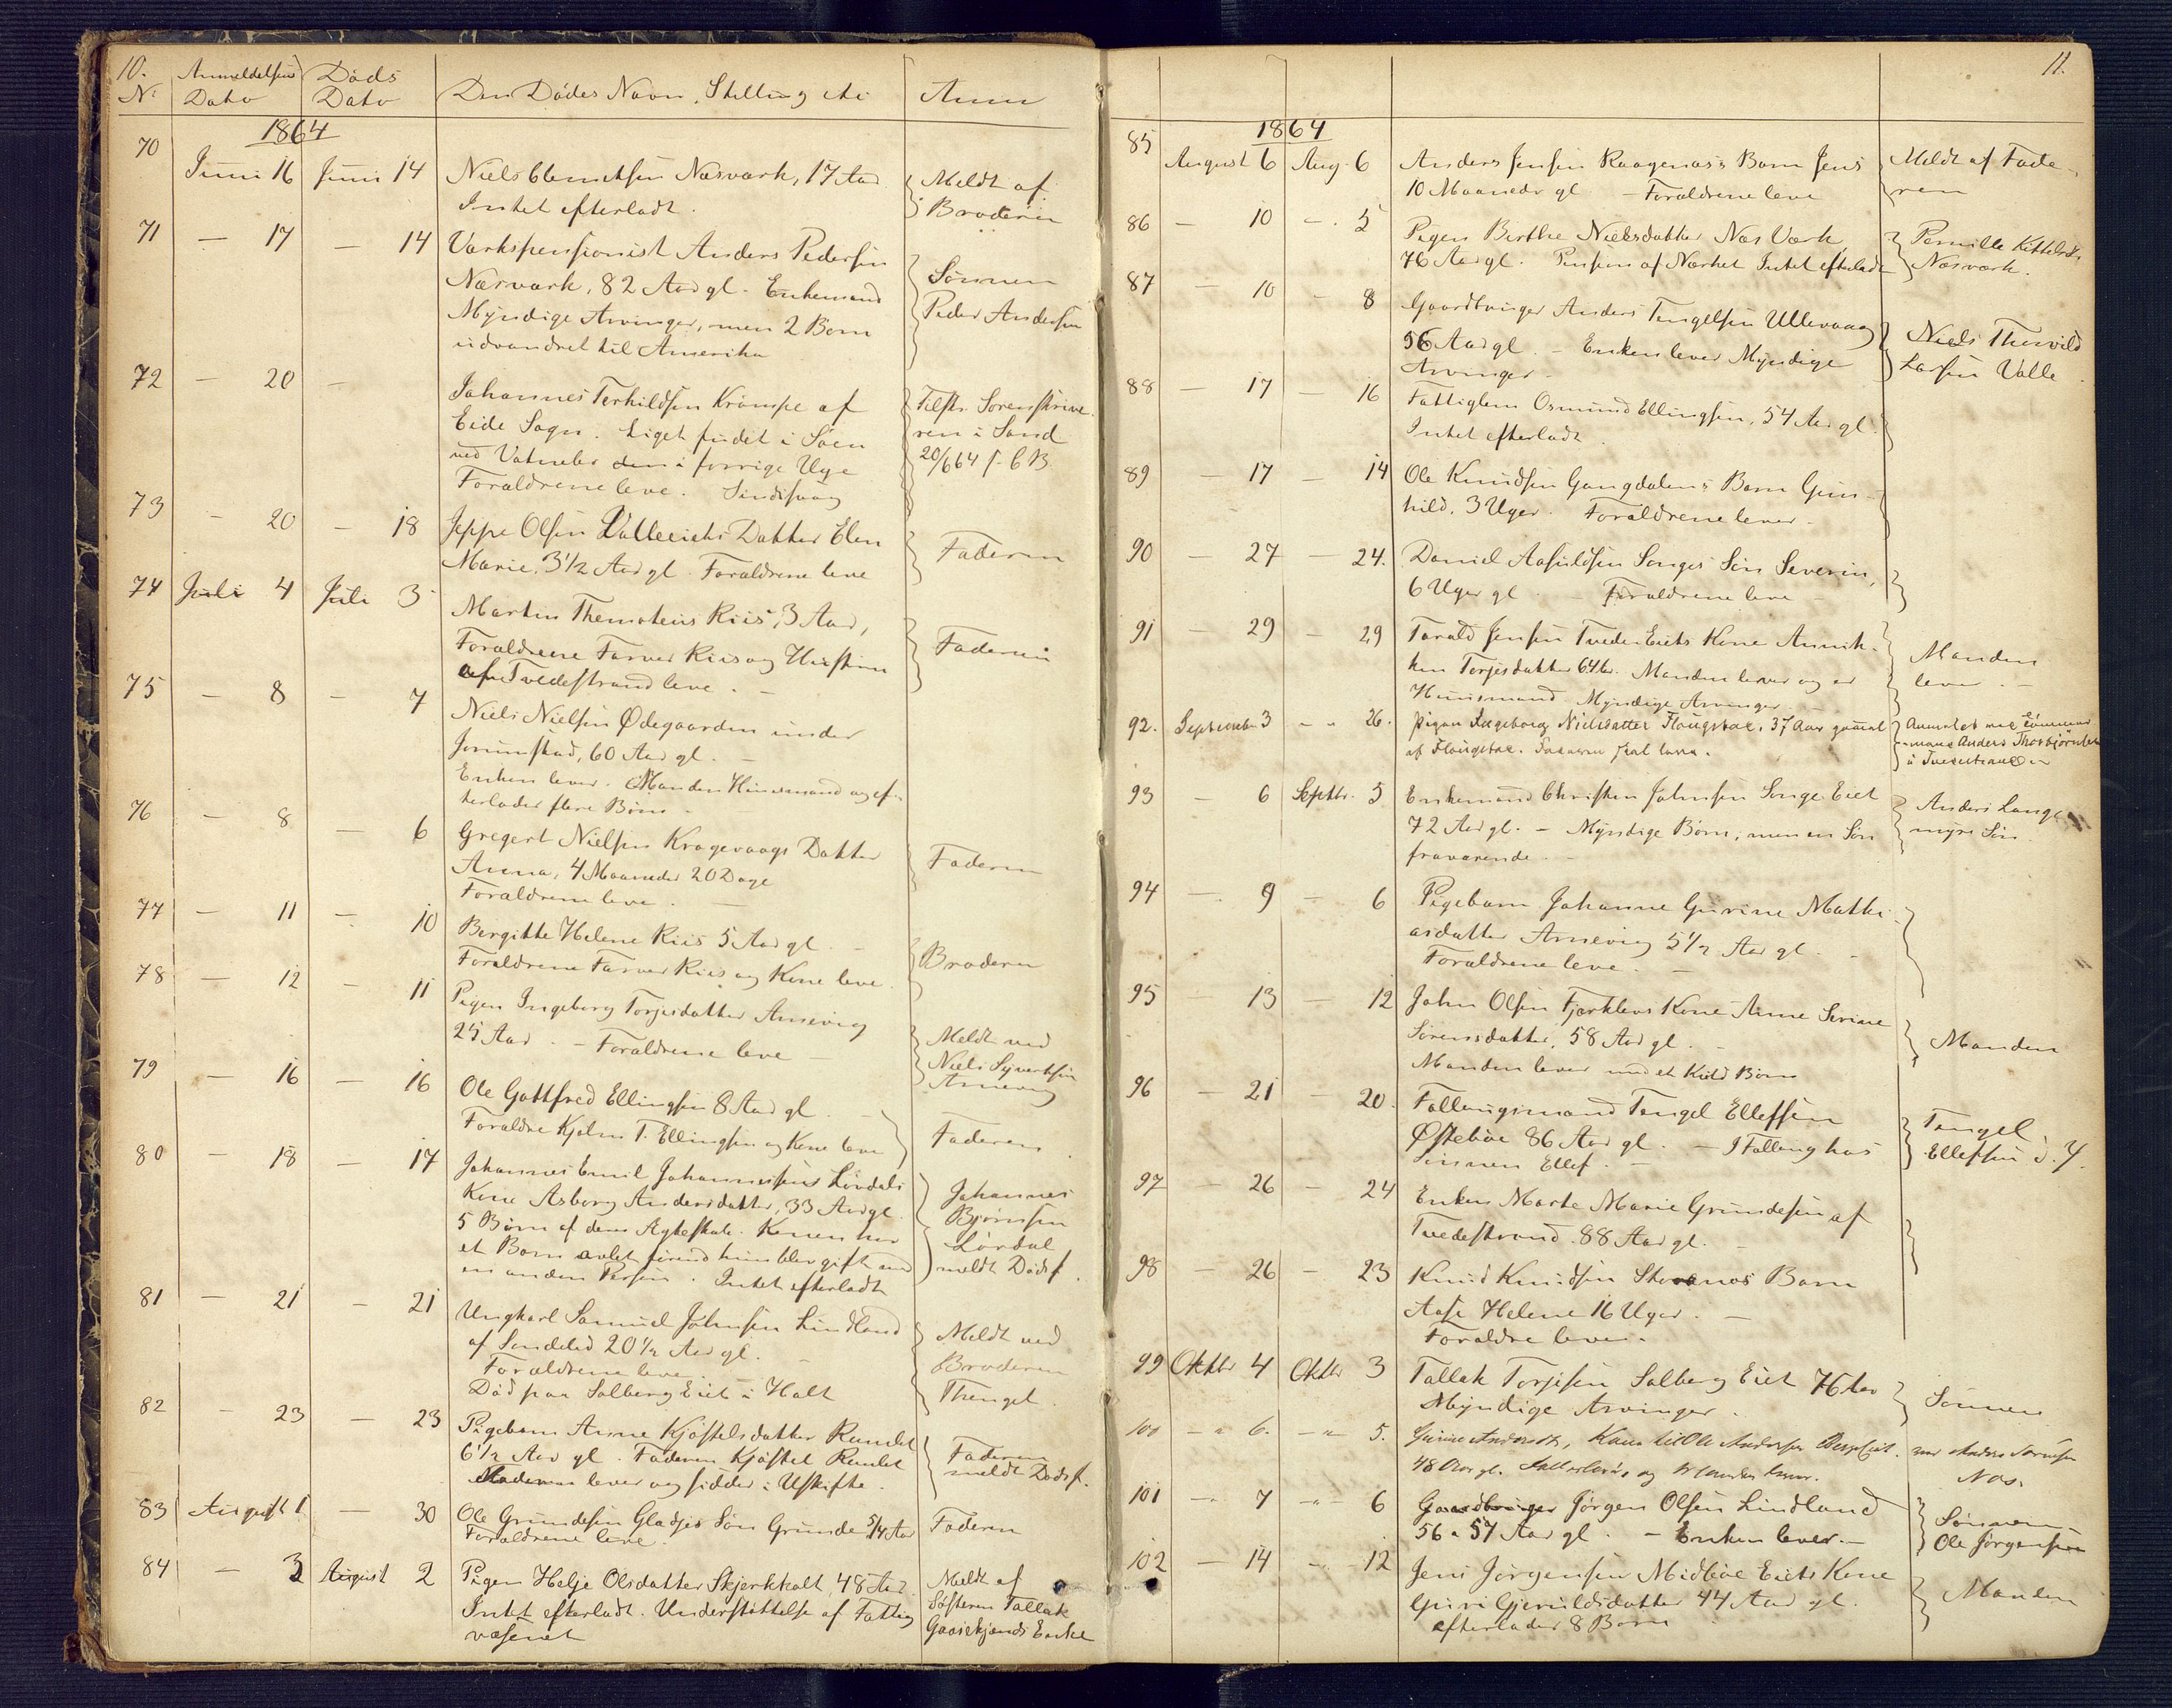 10.
No Anmeldelsens Dato Døds Dato Den Dødes Navn, Stilling etc Anm
1864
70 Juni 16 Juni 14 Niels Clemetsen Næsværk, 17 Aar Meldt af
Intet efterladt. Broderen
71 — 17 — 14 Værkspensionist Anders Pedersen
Næsværk, 82 Aar gl. Enkemand Sønnen
Myndige Arvinger, men 2 Børn Peder Andersen
udvandret til Amerika
72 — 20 — Johannes Terkildsen Krømpe af Tilstr. Sorenskrive
Eide Sogn. Liget fundet i Søen ren i Sand
ved Vatnebo i forrige Uge 20/6 64 f. C B
Forældrene leve.
73 — 20 — 18 Jeppe Olsen Datter Elen
Marie, 3 1/2 Aar gl. Forældrene leve Faderen
74 Juli 4 Juli 3 Martin Riis, 3 Aar,
Forældrene Farver Riis og Hustru Faderen
af Tvedestrand leve. —
75 — 8 — 7 Niels Nielsen Ødegaarden under
Jorunstad, 60 Aar gl. —
Enken lever. Manden Huusmand og ef-
terlader flere Børn.
76 — 8 — 6 Gregert Nielsen Kragevaags Datter
Anna, 4 Maaneder 20 Dage Faderen
Forældrene leve. —
77 — 11 — 10 Bergitte Helene Riis 5 Aar gl. —
Forældrene Farver Riis og Kone leve. Broderen
78 — 12 — 11 Pigen Ingeborg Torjesdatter Arnevig
25 Aar. — Forældrene leve — Meldt ved
Niels Syvertsen
Arnevig
79 — 16 — 16 Ole Gottfred Ellingsen 8 Aar gl. —
Forældre Kjøbm T. Ellingsen og Kone leve Faderen
80 — 18 — 17 Johannes Emil Johannesens Løvdals Johannes
Kone Asborg Andersdatter, 33 Aar gl. Bjørnsen
5 Børn af dem Ægteskab. Konen har Løvdal
et Barn avlet førend hun blev gift med meldt Dødsf.
en anden Person. Intet efterladt
81 — 21 — 21 Ungkarl Samuel Johnsen Lindland
af Søndeled 20 1/2 Aar gl. Meldt ved
Forældrene leve. Broderen
Død paa Solberg Eiet i Holt Thengel.
82 — 23 — 23 Pigebarn Anne Kjøstelsdatter Ramlet
6 1/2 Aar gl. Faderen Kjøstel Ramlet Faderen
Moderen lever og sidder i Uskifte. meldt Dødsf.
83 August 1 — 30 Ole Grundesen Gladjes Søn Grunde 5/4 Aar Faderen
Forældrene leve.
84 — 3 August 2 Pigen Helje Olsdatter Skjerkholt, 48 Aar Meldt af
Intet efterladt. Understøttelse af Fattig Søsteren Tallak
væsenet Enke
11.
1864
85 August 6 Aug. 6 Anders Jensen Barn Jens Meldt af Fade-
10 Maaneder gl — Forældrene leve ren
86 — 10 — 5 Pigen Birthe Nielsdatter Næs Værk Pernille Kittelsdr
76 Aar gl. Pension af Værket Intet efterladt Næsværk.
87 — 10 — 8 Gaardbruger Anders Tengelsen Ullevaag
56 Aar gl. — Enken lever Myndige Niels
Arvinger. Larsen Valle
88 — 17 — 16 Fattiglem Osmund Ellingsen, 54 Aar gl.
Intet efterladt.
89 — 17 — 14 Ole Knudsen Gangdalens Barn Gun-
hild, 3 Uger. Forældrene lever.
90 — 27 — 24. Daniel Aasuldsen Songes Søn Severin,
6 Uger gl. — Forældrene leve —
91 — 29 — 29 Tarald Jensen Tveden Eiets Kone Annik-
ken Torjesdatter 64 Aar. Manden lever og er Manden
Huusmand Myndige Arvinger. lever. —
92. September 3 26. Pigen Ingeborg Nielsdatter Flougstad, 37 Aar gammel Anmeldt ved Tømmer
af Flougstad. Faderen skal leve. mand Anders Thorbjørnsen
i Tvedestrand
93 — 6 Septbr. 5 Enkemand Christen Johnsen Songe Eiet Anders Lang
72 Aar gl. — Myndige Børn, men en Søn myr Søn.
fraværende.
94 — 9 — 6 Pigebarn Johanne Gurine Mathi-
asdatter Arnevig 5 1/2 Aar gl. —
Forældrene leve. —
95 — 13 — 12 John Olsen Fjærkleves Kone Anne Serine
Sørensdatter, 58 Aar gl. — Manden
Manden lever med et Kuld Børn
96 — 21 — 20. Føllaugsmand Tengel Ellefsen Tengel
Østebøe 86 Aar gl. — I Føllaug hos Ellefsen d. y.
Sønnen Ellef. —
97 — 26 — 24 Enken Marte Marie Grundesen af
Tvedestrand 88 Aar gl. —
98 — 26 — 23 Knud Knudsen Barn
Aase Helene 16 Uger. —
Forældre lever.
99 Oktbr 4 Oktbr 3 Tallak Torjesen Solberg Eiet 76 Aar
Myndige Arvinger. Sønnen
100 6. 5. Gurine Andersdtr, Kone til Ole Andersen
48 Aar gl. og Manden lever. Næs.
101 7 6 Gaardbruger Jørgen Olsen Lindland Sønnen
56 a 57 Aar gl. — Enken lever. — Ole Jørgensen
102 — 14 12 Jens Jørgensen Midbøe Eiets Kone
Guri Gjeruldsdatter 44 Aar gl. Manden
efterlader 8 Børn